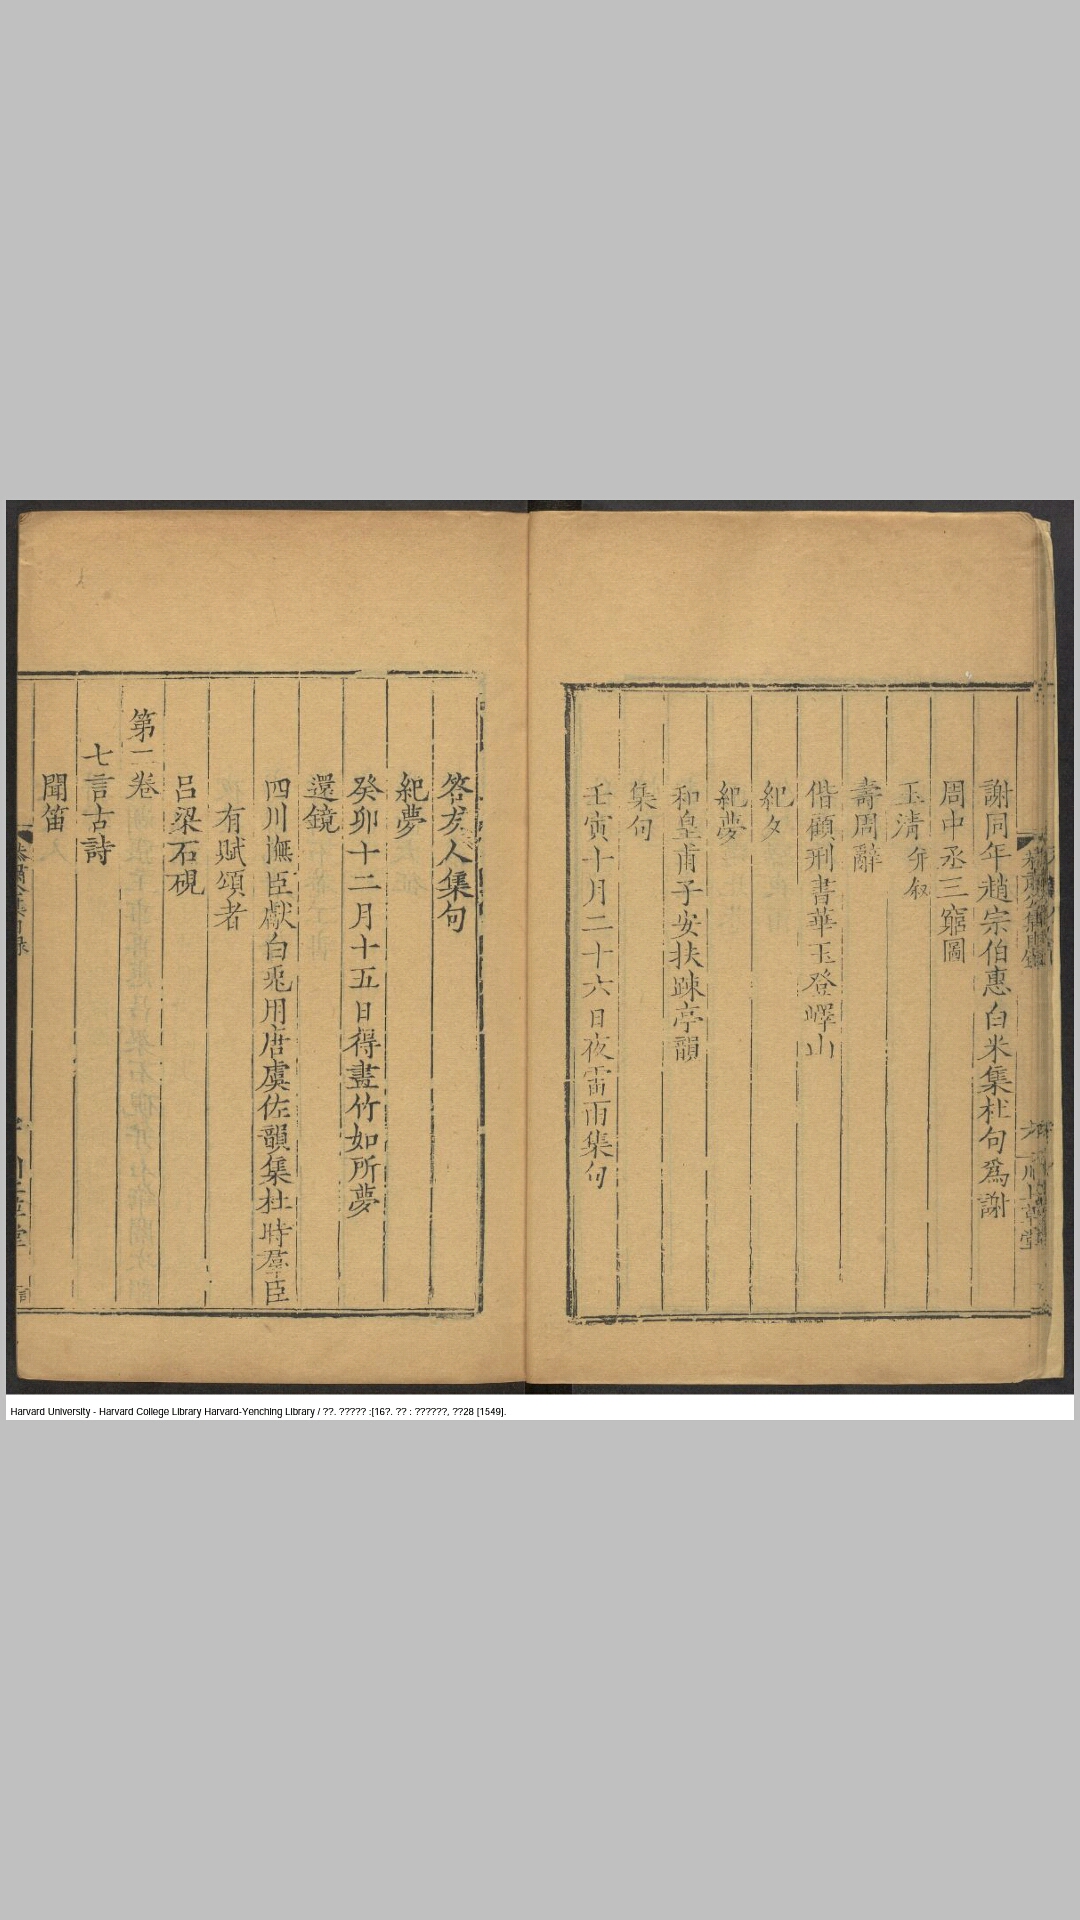 謝同年趙宗伯惠白米集杜句爲謝
周中丞三窮圖
玉淸并叙
壽周辭
偕顧刑書華玉登嶧山
紀夕
紀夢
和皇甫子安扶踈亭韻
集句
壬寅十月二十六日夜雷雨集句
答友人集句
紀夢
癸卯十二月十五日得畫竹如所夢
還鏡
四川撫臣獻白兎用唐虞佐韻集杜時羣臣
有賦頌者
呂梁石硯
第二卷
七言古詩
聞笛
Harvard University - Harvard College Library Harvard-Yenching Library / ??. ????? :[16?. ?? : ??????, ??28 [1549].